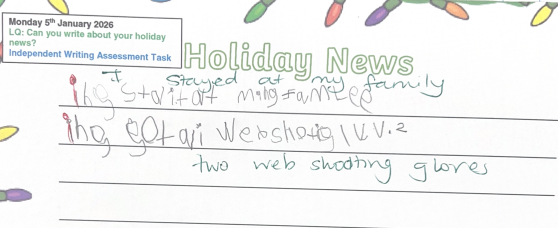 Monday 5th January 2026
LQ: Can you write about your holiday
news?
Independent Writing Assessment Task
Holiday News
I stayed at my family
ihg staitat ming famlee
ihg got ai webshotig
two web shooting gloves